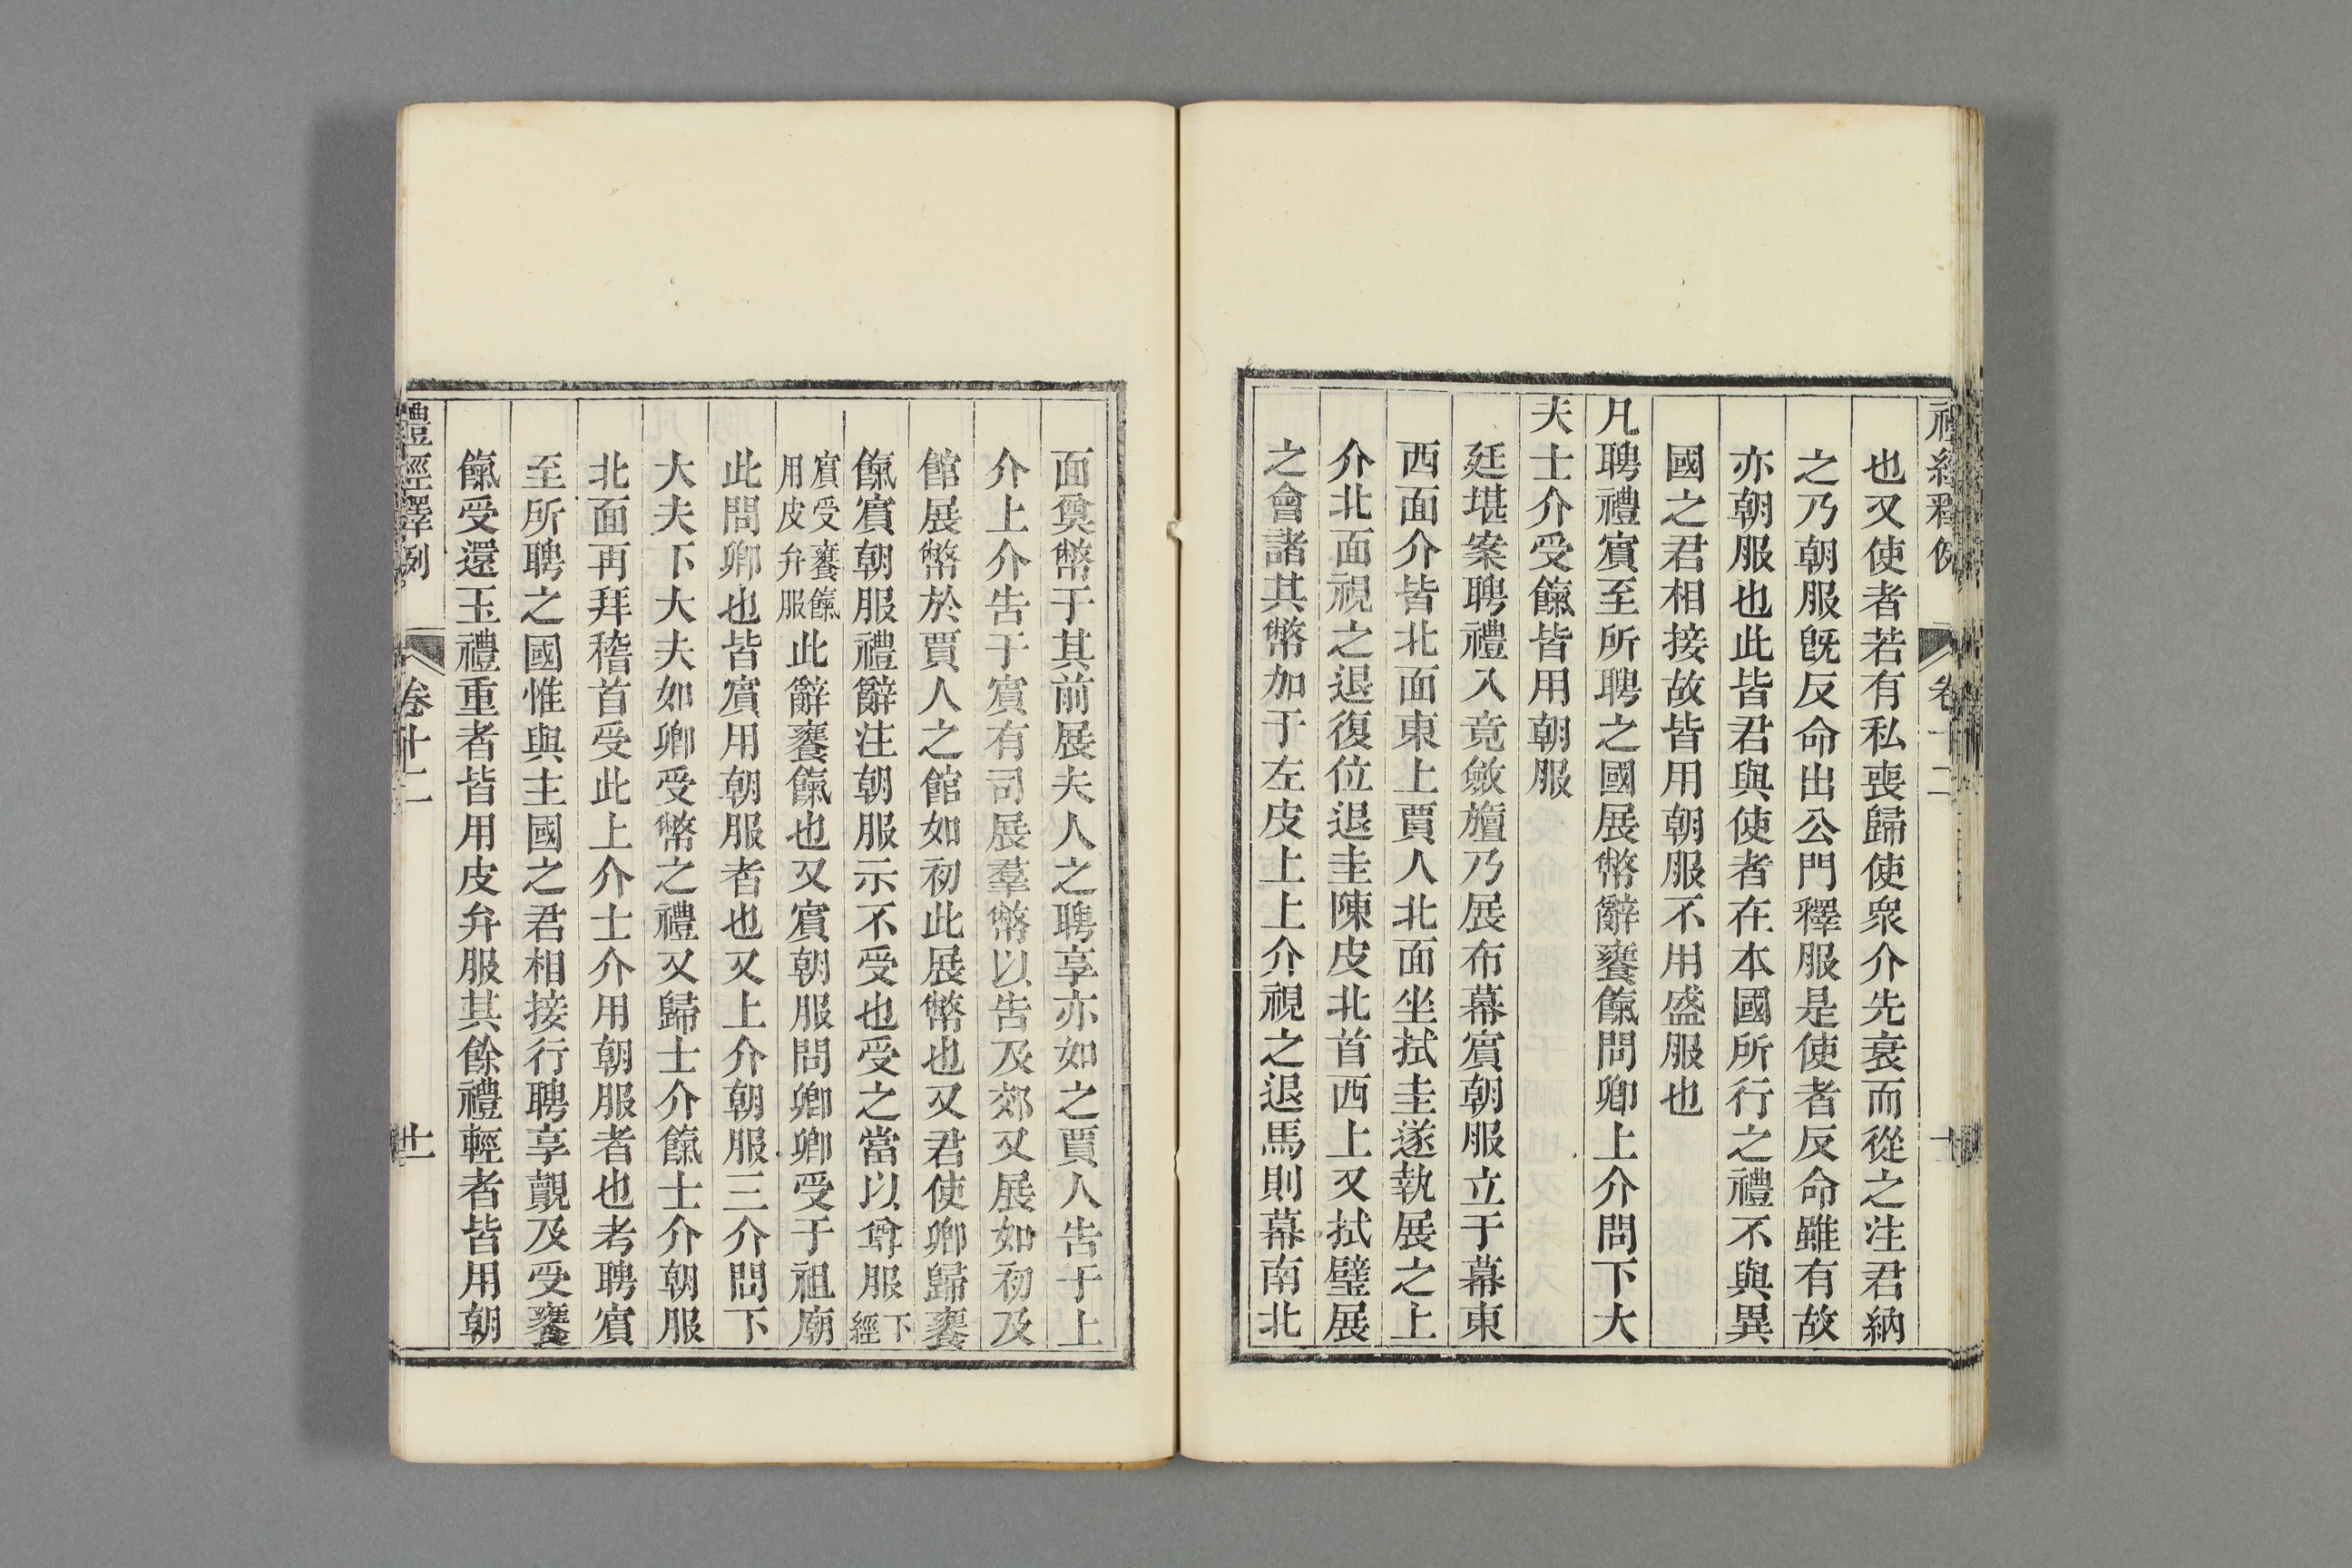 禮經釋例 卷十二
也又使者若有私喪歸使衆介先衰而從之注君納
之乃朝服旣反命出公門釋服是使者反命雖有故
亦朝服也此皆君與使者在本國所行之禮不與異
國之君相接故皆用朝服不用盛服也
凡聘禮賓至所聘之國展幣辭饔餼問卿上介問下大
夫士介受餼皆用朝服
廷堪案聘禮入竟斂旜乃展布幕賓朝服立于幕東
西面介皆北面東上賈人北面坐拭圭遂執展之上
介北面視之退復位退圭陳皮北首西上又拭璧展
之會諸其幣加于左皮上上介視之退馬則幕南北
面奠幣于其前展夫人之聘享亦如之賈人告于上
介上介告于賓有司展羣幣以告及郊又展如初及
館展幣於賈人之館如初此展幣也又君使卿歸饔
餼賓朝服禮辭注朝服示不受也受之當以尊服下經
賓受饔餼用皮弁服此辭饔餼也又賓朝服問卿卿受于祖廟
此問卿也皆賓用朝服者也又上介朝服三介問下
大夫下大夫如卿受幣之禮又歸士介餼士介朝服
北面再拜稽首受此上介士介用朝服者也考聘賓
至所聘之國惟與主國之君相接行聘享覿及受饔
餼受還玉禮重者皆用皮弁服其餘禮輕者皆用朝
禮經釋例 卷十二 十一